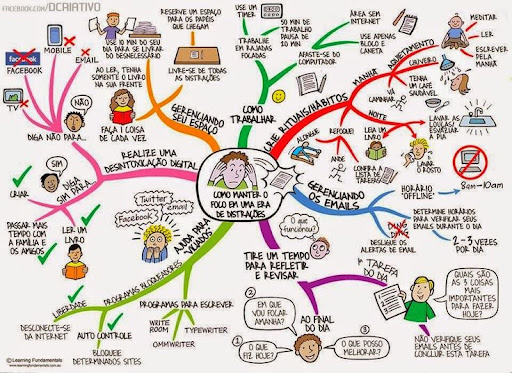 FACEBOOK.COM/DCRIATIVO
MOBILE
EMAIL
FACEBOOK
TV
NÃO
DIGA NÃO PARA...
RESERVE UM ESPAÇO
PARA OS PAPÉIS
QUE CHEGAM
10 MIN DO SEU
DIA PARA SE LIVRAR
DO DESNECESSÁRIO
AO LER, TENHA
SOMENTE O LIVRO
NA SUA FRENTE
LIVRE-SE DE TODAS
AS DISTRAÇÕES
FAÇA 1 COISA
DE CADA VEZ
GERENCIANDO
SEU ESPAÇO
USE UM
TIMER
50 MIN DE
TRABALHO
PAUSA DE
10 MIN
TRABALHE
EM RAJADAS
FOCADAS
ÁREA SEM
INTERNET
USE APENAS
BLOCO E
CANETA
AFASTE-SE DO
COMPUTADOR
COMO
TRABALHAR
CRIE RITUAIS/HÁBITOS
MANHÃ
AQUIETAMENTO
MEDITAR
LER
ESCREVER
PELA
MANHÃ
CHUVEIRO
TENHA
UM CAFÉ
SAUDÁVEL
VÁ
CAMINHAR
NOITE
LAVAR AS
LOUÇAS/
ESVAZIAR A
PIA
ALONGUE
RESPIRE!
LEIA UM
LIVRO
ANDE
CONFIRA A
LISTA DE
TAREFAS
LAVAR
O ROSTO
REALIZE UMA
DESINTOXICAÇÃO DIGITAL
SIM
DIGA
SIM PARA...
CRIAR
PASSAR MAIS
TEMPO COM
A FAMÍLIA E
OS AMIGOS
LER UM
LIVRO
COMO MANTER O
FOCO EM UMA ERA
DE DISTRAÇÕES
GERENCIANDO
OS EMAILS
HORÁRIO
"OFFLINE"
8am-10am
DETERMINE HORÁRIOS
PARA VERIFICAR SEUS
EMAILS DURANTE O DIA
2-3 VEZES
POR DIA
DING
DING
DESLIGUE OS
ALERTAS DE EMAIL
Twitter
email
Facebook
AJUDA PARA
VICIADOS
PROGRAMAS BLOQUEADORES
LIBERDADE
DESCONECTE-SE
DA INTERNET
AUTO CONTROLE
BLOQUEIE
DETERMINADOS SITES
PROGRAMAS PARA ESCREVER
WRITE
ROOM
TYPEWRITER
OMMWRITER
O que
funcionou?
TIRE UM TEMPO
PARA REFLETIR
E REVISAR
1ª TAREFA
DO DIA
QUAIS SÃO
AS 3 COISAS
MAIS
IMPORTANTES
PARA FAZER
HOJE?
NÃO VERIFIQUE SEUS
EMAILS ANTES DE
CONCLUIR ESTA TAREFA
AO FINAL
DO DIA
2
EM QUE
VOU FOCAR
AMANHÃ?
1
O QUE
FIZ HOJE?
3
O QUE POSSO
MELHORAR?
© Learning Fundamentals
www.learningfundamentals.com.au